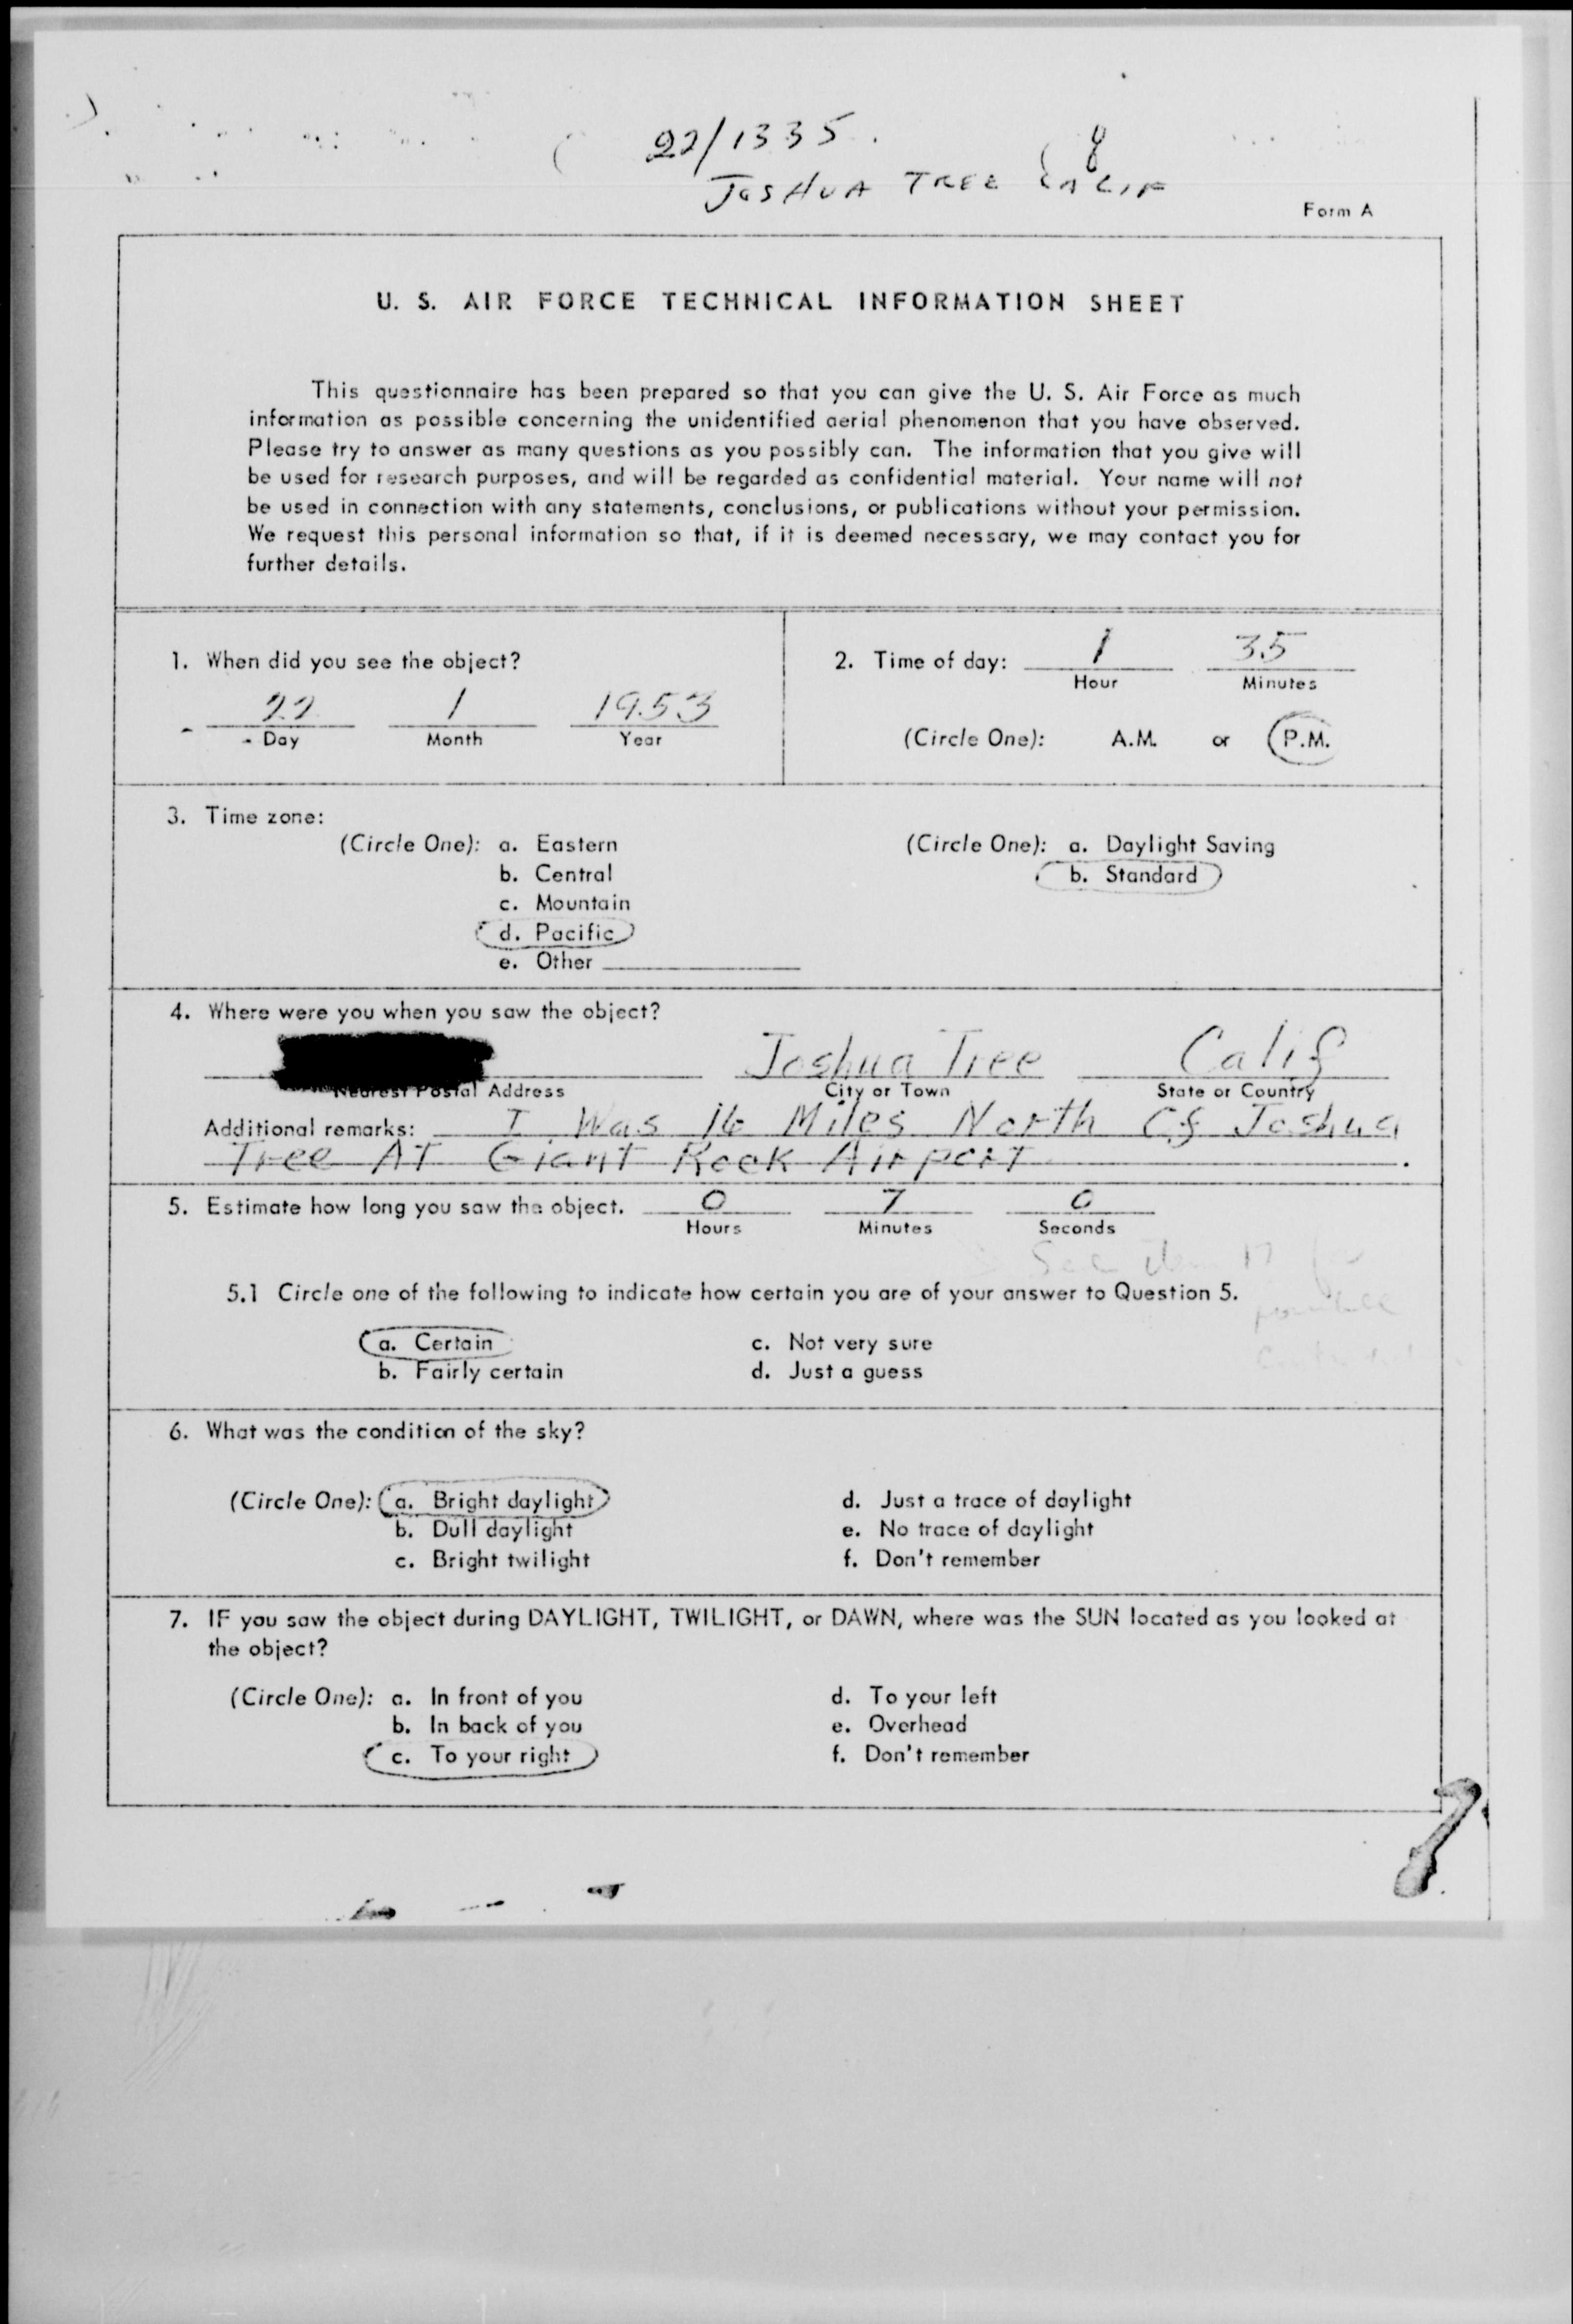 22/1335
JOSHUA TREE CALIF
Form A
U. S. AIR FORCE TECHNICAL INFORMATION SHEET
This questionnaire has been prepared so that you can give the U. S. Air Force as much
information as possible concerning the unidentified aerial phenomenon that you have observed.
Please try to answer as many questions as you possibly can. The information that you give will
be used for research purposes, and will be regarded as confidential material. Your name will not
be used in connection with any statements, conclusions, or publications without your permission.
We request this personal information so that, if it is deemed necessary, we may contact you for
further details.
1. When did you see the object?
22 1 1953
Day Month Year
2. Time of day: 1 35
Hour Minutes
(Circle One): A.M. or P.M.
3. Time zone:
(Circle One): a. Eastern
b. Central
c. Mountain
d. Pacific
e. Other
(Circle One): a. Daylight Saving
b. Standard
4. Where were you when you saw the object?
Joshua Tree Calif
Nearest Postal Address City or Town State or Country
Additional remarks: I Was 16 Miles North Of Joshua
Tree AT Giant Rock Airport
5. Estimate how long you saw the object. 0 7 0
Hours Minutes Seconds
See Item 17 for
possible
5.1 Circle one of the following to indicate how certain you are of your answer to Question 5.
a. Certain
b. Fairly certain
c. Not very sure
d. Just a guess
6. What was the condition of the sky?
(Circle One): a. Bright daylight
b. Dull daylight
c. Bright twilight
d. Just a trace of daylight
e. No trace of daylight
f. Don't remember
7. IF you saw the object during DAYLIGHT, TWILIGHT, or DAWN, where was the SUN located as you looked at
the object?
(Circle One): a. In front of you
b. In back of you
c. To your right
d. To your left
e. Overhead
f. Don't remember